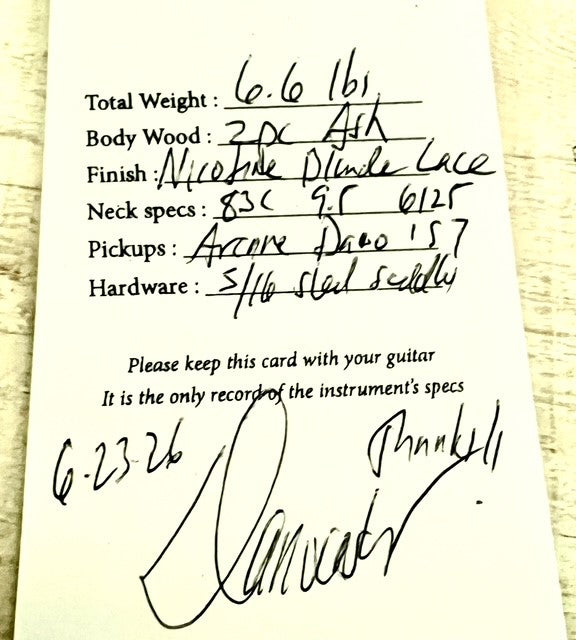 Total Weight : 6.6 lbs
Body Wood : 2 pc Ash
Finish : Nicotine Blonde Lace
Neck specs : 83C 9.5 6125
Pickups : Arcane '57
Hardware : 5/16 steel saddles
Please keep this card with your guitar
It is the only record of the instrument's specs
6-23-26 Thanks!!